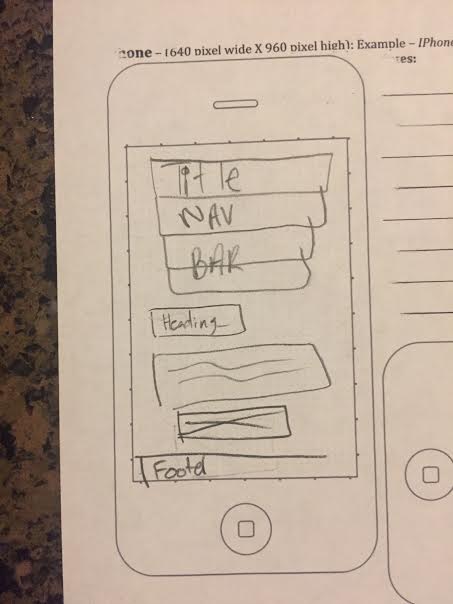 one – (640 pixel wide X 960 pixel high): Example – IPhone
es:
Title
NAV
BAR
Heading
Footer